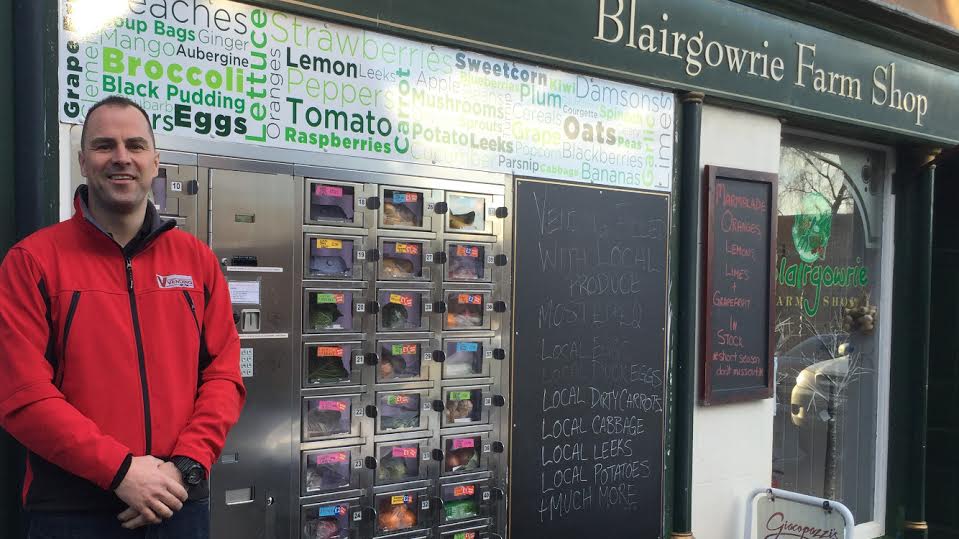 Blairgowrie Farm Shop
Peaches
Soup Bags Ginger
Mango Aubergine
Broccoli
Black Pudding
Eggs
Grape
Lettuce
Oranges
Strawberries
Lemon Leeks
Peppers
Tomato
Raspberries
Carrot
Apple
Sweetcorn
Blueberries Kiwi
Plum
Damsons
Mushrooms
Cereals
Courgette
Spinach
Sprouts
Grape
Oats
Peas
Potato Leeks
Popcorn
Blackberries
Cucumber
Parsnip Cabbage Bananas
Garlic
Limes
VENDING
10
WITH LOCAL
PRODUCE
LOCAL
LOCAL DUCK EGGS
LOCAL DIRTY CARROTS
LOCAL CABBAGE
LOCAL LEEKS
LOCAL POTATOES
+ MUCH MORE
MARMALADE
ORANGES
LEMONS
LIMES
+
GRAPEFRUIT
IN
STOCK
*short season
don't miss out!*
Blairgowrie
FARM SHOP
Giacopazzi's